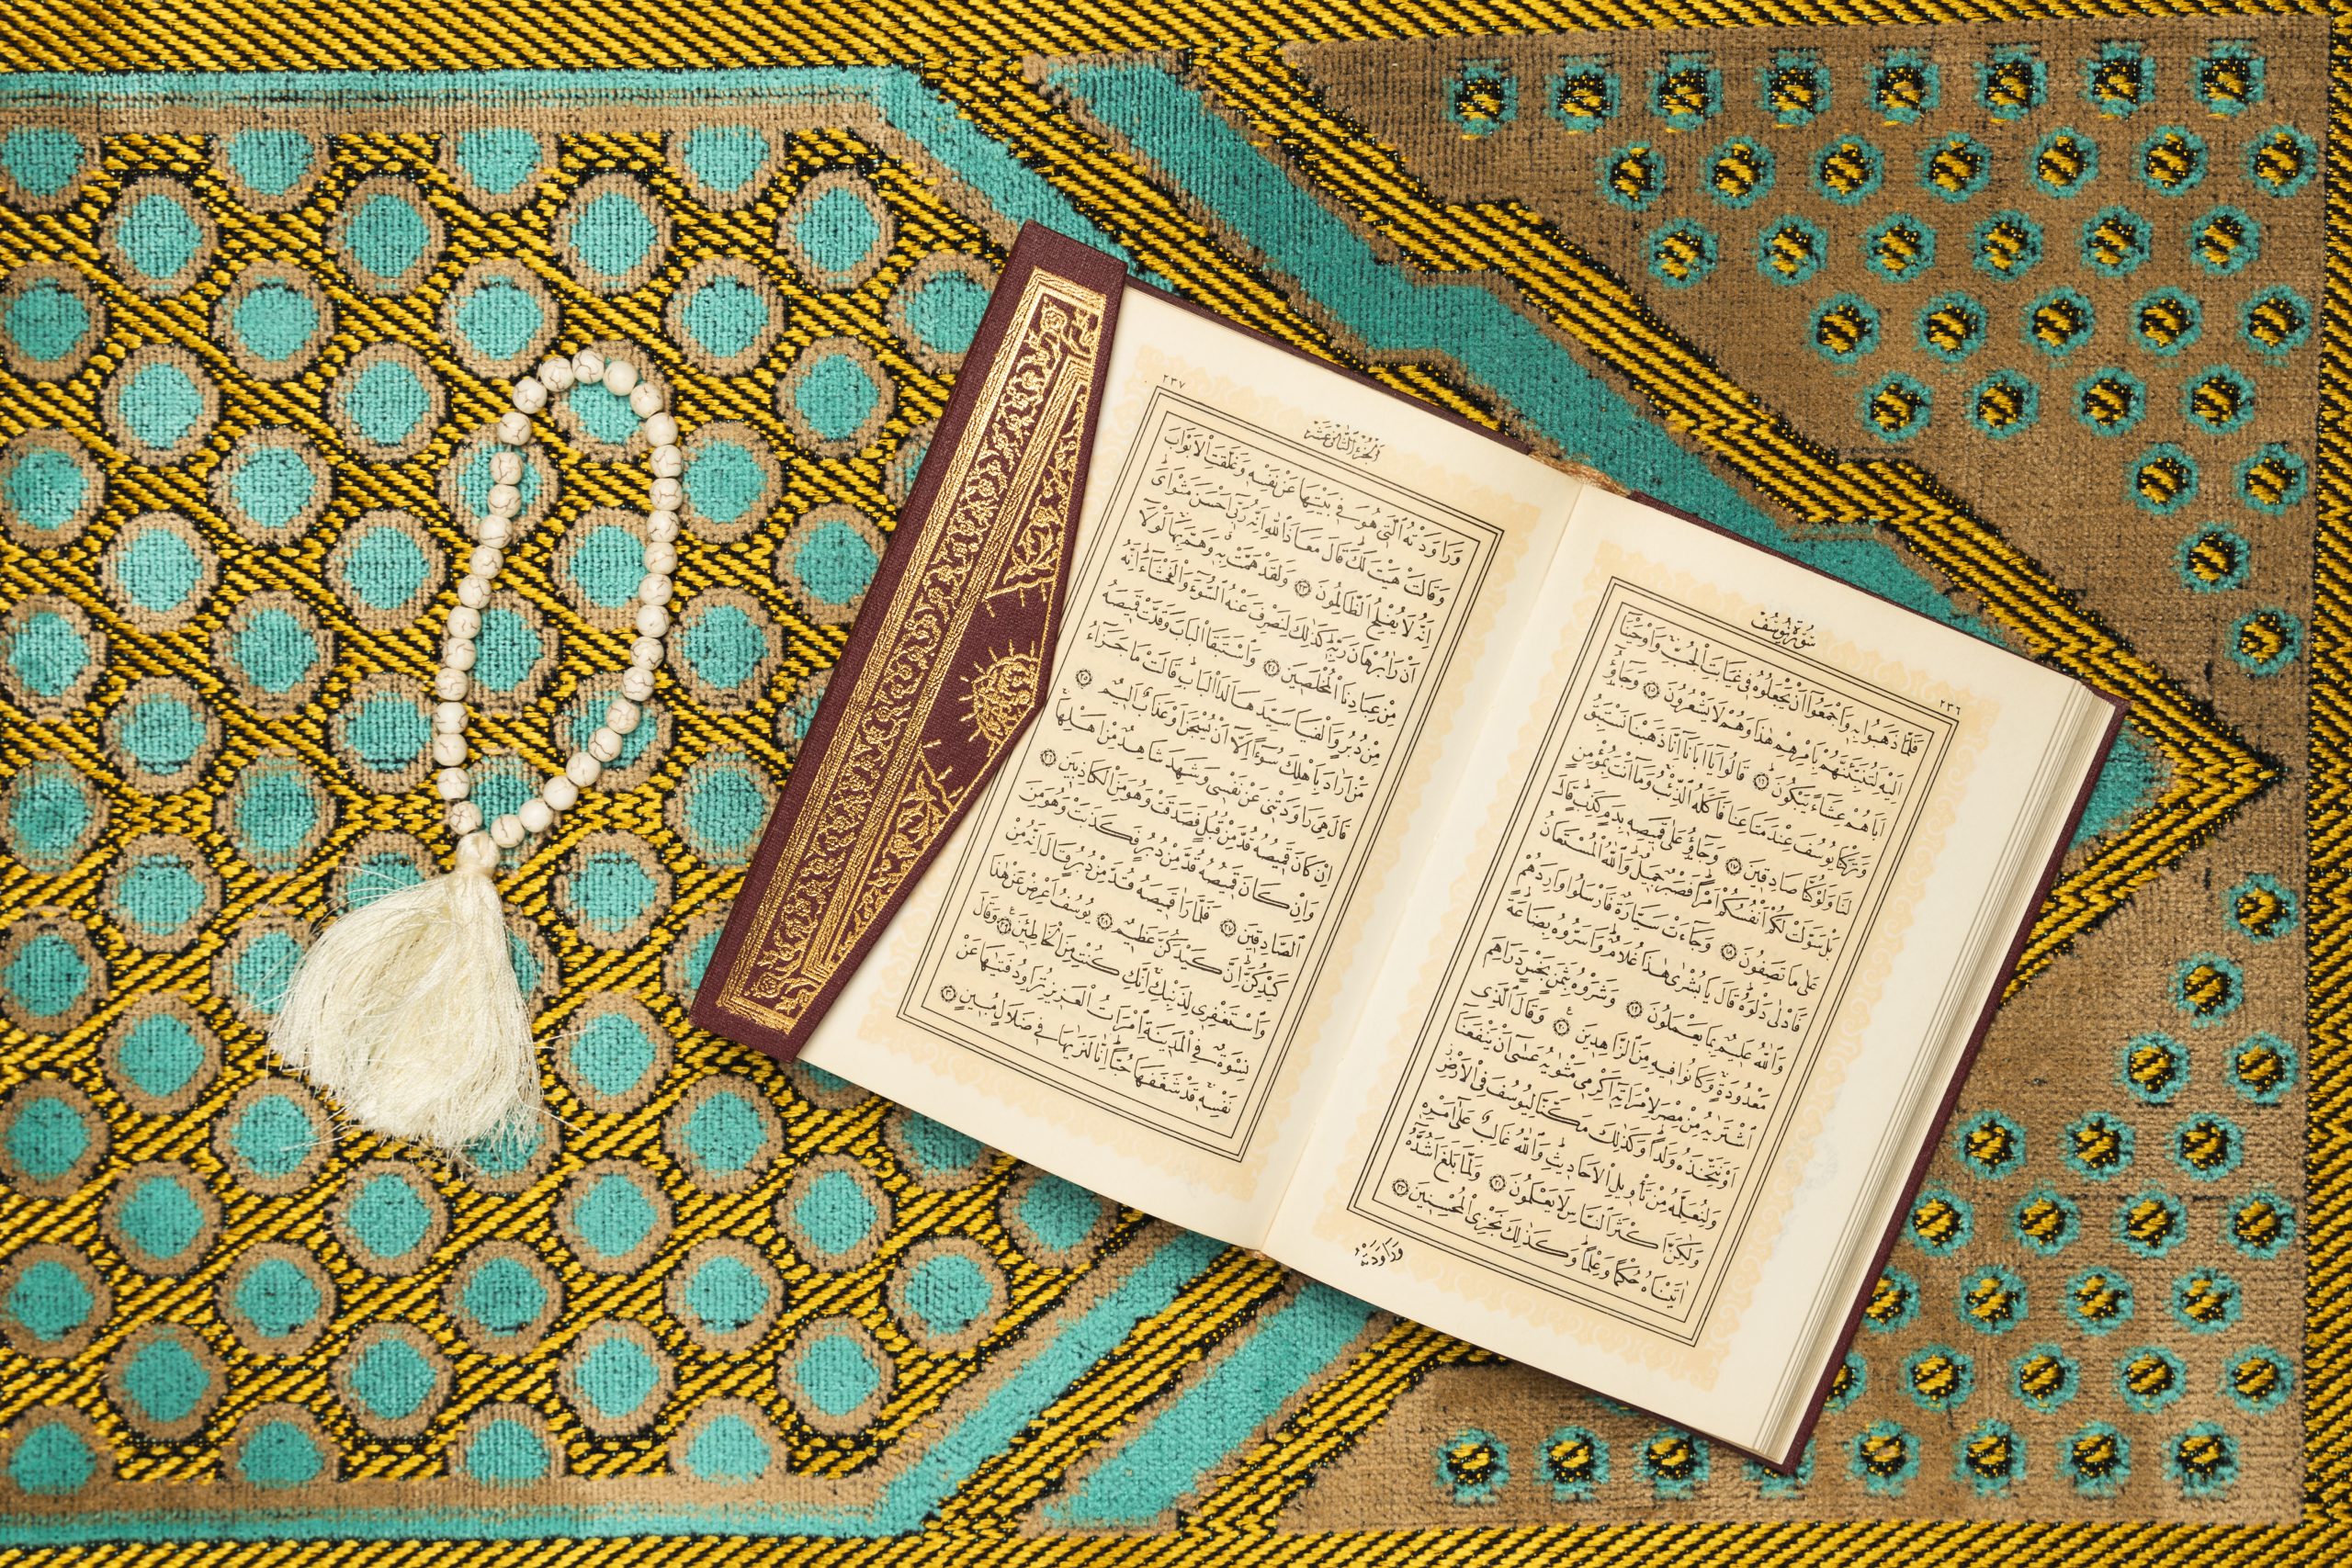 سُورَةُ يُوسُفَ
٢٣٦
فَلَمَّا ذَهَبُوا بِهِ وَاَجْمَعُٓوا اَنْ يَجْعَلُوهُ فِي غَيَابَتِ الْجُبِّ وَاَوْحَيْنَٓا
اِلَيْهِ لَتُنَبِّئَنَّهُمْ بِاَمْرِهِمْ هٰذَا وَهُمْ لَا يَشْعُرُونَ ١٥ وَجَٓاؤُٓ
اَبَاهُمْ عِشَٓاءً يَبْكُونَ ١٦ قَالُوا يَٓا اَبَانَٓا اِنَّا ذَهَبْنَا نَسْتَبِقُ
وَتَرَكْنَا يُوسُفَ عِنْدَ مَتَاعِنَا فَاَكَلَهُ الذِّئْبُ وَمَٓا اَنْتَ بِمُؤْمِنٍ
لَنَا وَلَوْ كُنَّا صَادِقِينَ ١٧ وَجَٓاؤُ عَلٰى قَمِيصِهِ بِدَمٍ كَذِبٍ قَالَ
بَلْ سَوَّلَتْ لَكُمْ اَنْفُسُكُمْ اَمْرًا فَصَبْرٌ جَمِيلٌ وَاللّٰهُ الْمُسْتَعَانُ
عَلٰى مَا تَصِفُونَ ١٨ وَجَٓاءَتْ سَيَّارَةٌ فَاَرْسَلُوا وَارِدَهُمْ
فَاَدْلٰى دَلْوَهُ قَالَ يَا بُشْرٰى هٰذَا غُلَامٌ وَاَسَرُّوهُ بِضَاعَةً
وَاللّٰهُ عَلِيمٌ بِمَا يَعْمَلُونَ ١٩ وَشَرَوْهُ بِثَمَنٍ بَخْسٍ دَرَاهِمَ
مَعْدُودَةٍ وَكَانُوا فِيهِ مِنَ الزَّاهِدِينَ ٢٠ وَقَالَ الَّذِي
اشْتَرٰيهُ مِنْ مِصْرَ لِامْرَاَتِهِٓ اَكْرِمِي مَثْوٰيهُ عَسٰٓى اَنْ يَنْفَعَنَٓا
اَوْ نَتَّخِذَهُ وَلَدًا وَكَذٰلِكَ مَكَّنَّا لِيُوسُفَ فِي الْاَرْضِ
وَلِنُعَلِّمَهُ مِنْ تَأْوِيلِ الْاَحَادِيثِ وَاللّٰهُ غَالِبٌ عَلٰٓى اَمْرِهِ
وَلٰكِنَّ اَكْثَرَ النَّاسِ لَا يَعْلَمُونَ ٢١ وَلَمَّا بَلَغَ اَشُدَّهُٓ
اٰتَيْنَاهُ حُكْمًا وَعِلْمًا وَكَذٰلِكَ نَجْزِي الْمُحْسِنِينَ ٢٢
وَرَاوَدَتْهُ
٢٣٧
اَلْجُزْءُ الثَّانِي عَشَرَ
وَرَاوَدَتْهُ الَّتِي هُوَ فِي بَيْتِهَا عَنْ نَفْسِهِ وَغَلَّقَتِ الْاَبْوَابَ
وَقَالَتْ هَيْتَ لَكَ قَالَ مَعَاذَ اللّٰهِ اِنَّهُ رَبِّٓي اَحْسَنَ مَثْوَايَ
اِنَّهُ لَا يُفْلِحُ الظَّالِمُونَ ٢٣ وَلَقَدْ هَمَّتْ بِهِ وَهَمَّ بِهَا لَوْلَٓا
اَنْ رَاٰ بُرْهَانَ رَبِّهِ كَذٰلِكَ لِنَصْرِفَ عَنْهُ السُّٓوءَ وَالْفَحْشَٓاءَ اِنَّهُ
مِنْ عِبَادِنَا الْمُخْلَصِينَ ٢٤ وَاسْتَبَقَا الْبَابَ وَقَدَّتْ قَمِيصَهُ
مِنْ دُبُرٍ وَاَلْفَيَا سَيِّدَهَا لَدَا الْبَابِ قَالَتْ مَا جَزَٓاءُ
مَنْ اَرَادَ بِاَهْلِكَ سُٓوءًا اِلَّٓا اَنْ يُسْجَنَ اَوْ عَذَابٌ اَلِيمٌ ٢٥
قَالَ هِيَ رَاوَدَتْنِي عَنْ نَفْسِي وَشَهِدَ شَاهِدٌ مِنْ اَهْلِهَا
اِنْ كَانَ قَمِيصُهُ قُدَّ مِنْ قُبُلٍ فَصَدَقَتْ وَهُوَ مِنَ الْكَاذِبِينَ ٢٦
وَاِنْ كَانَ قَمِيصُهُ قُدَّ مِنْ دُبُرٍ فَكَذَبَتْ وَهُوَ مِنَ
الصَّادِقِينَ ٢٧ فَلَمَّا رَاٰ قَمِيصَهُ قُدَّ مِنْ دُبُرٍ قَالَ اِنَّهُ مِنْ
كَيْدِكُنَّ اِنَّ كَيْدَكُنَّ عَظِيمٌ ٢٨ يُوسُفُ اَعْرِضْ عَنْ هٰذَا
وَاسْتَغْفِرِي لِذَنْبِكِ اِنَّكِ كُنْتِ مِنَ الْخَاطِـِٔينَ ٢٩ وَقَالَ
نِسْوَةٌ فِي الْمَدِينَةِ امْرَاَتُ الْعَزِيزِ تُرَاوِدُ فَتٰيهَا عَنْ
نَفْسِهِ قَدْ شَغَفَهَا حُبًّا اِنَّا لَنَرٰيهَا فِي ضَلَالٍ مُبِينٍ ٣٠